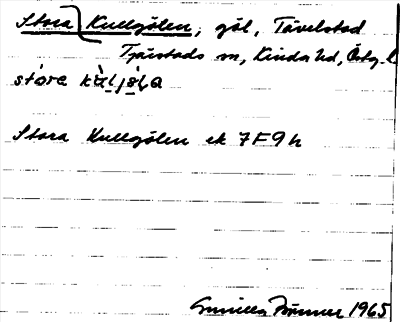 Stora Kullgölen, göl, Tävelstad
Tjärstads sn, Kinda hd, Östg. l.
Stora Kullgölen ek 7F9h
Gunilla 1965